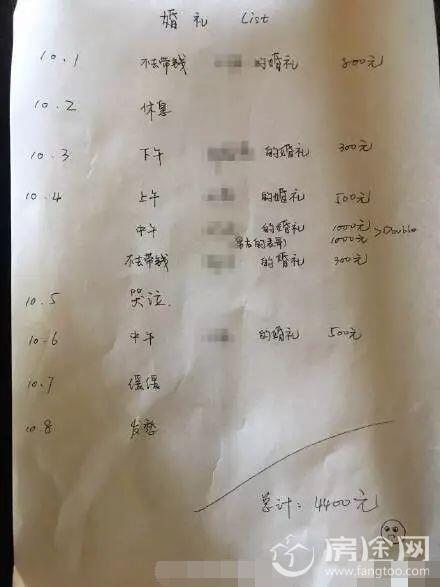 婚礼 List
10.1 不去带钱 的婚礼 800元
10.2 休息
10.3 下午 的婚礼 300元
10.4 上午 的婚礼 500元
中午 的婚礼 1000元 >Double
1000元
不去带钱 的婚礼 300元
10.5 哭泣.
10.6 中午 的婚礼 500元
10.7 缓缓
10.8 发愁
总计: 4400元
房途网
www.fangtoo.com